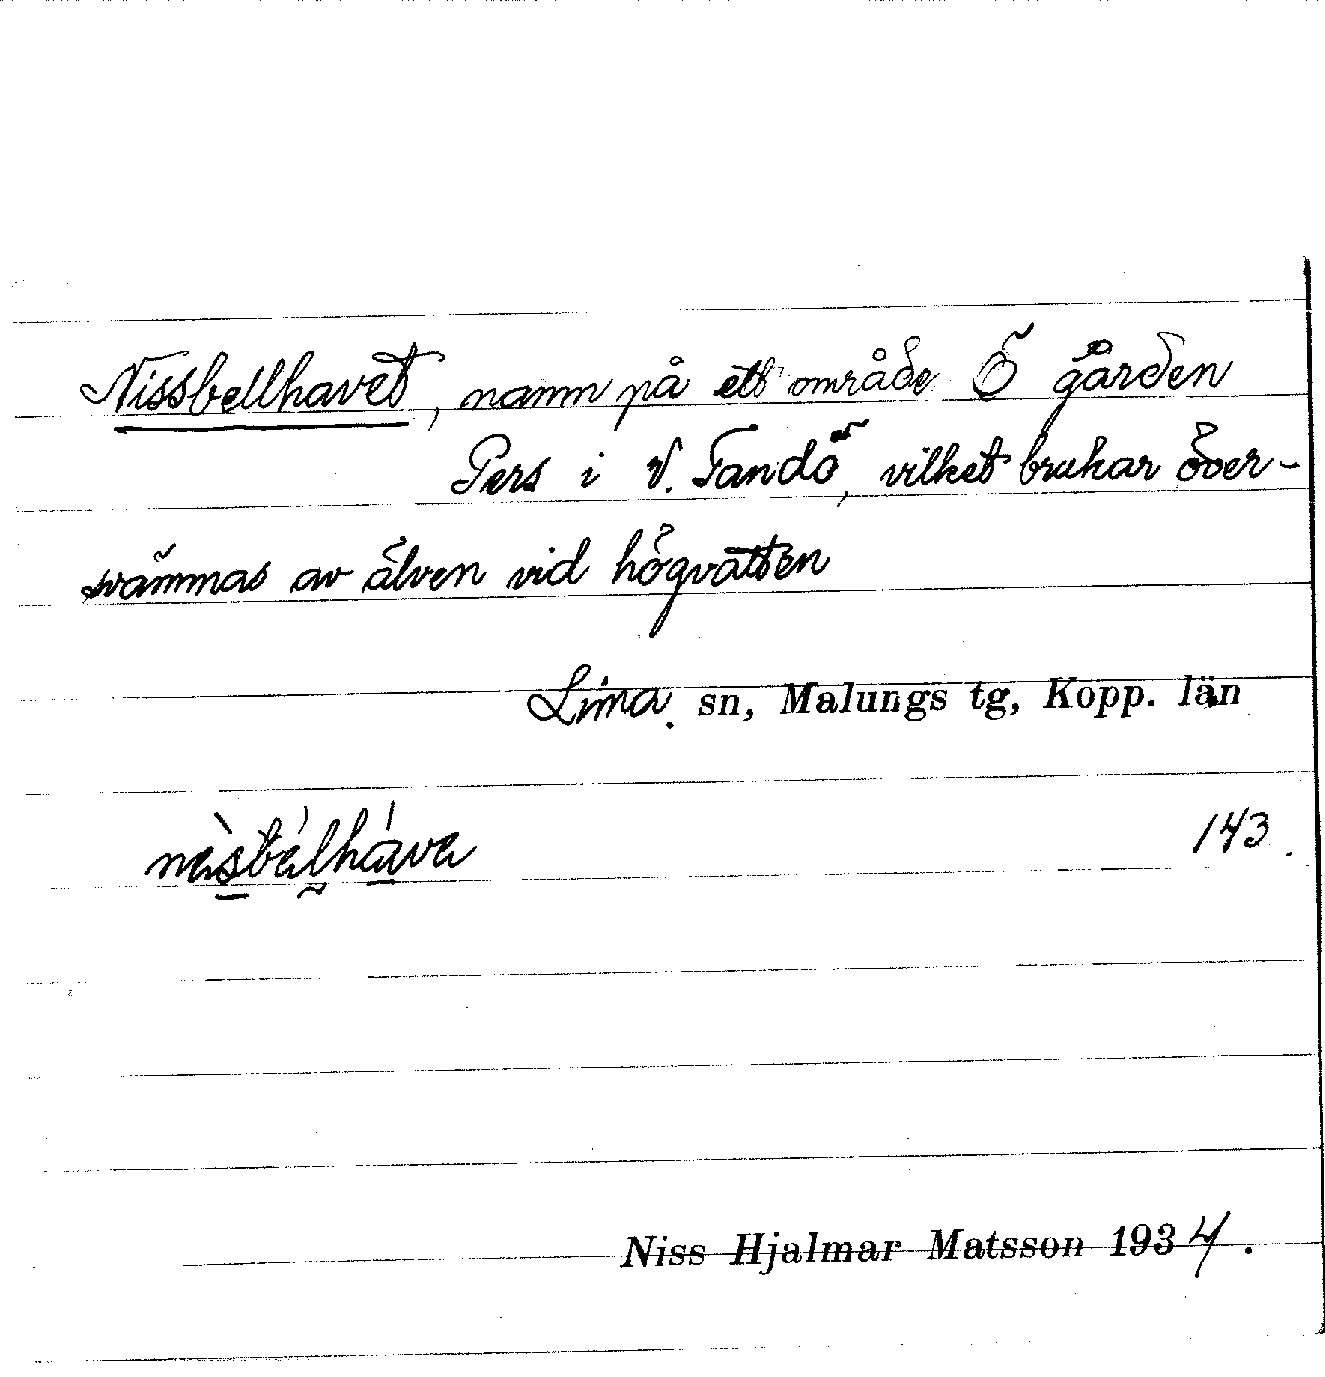 Nissbellhavet, namn på ett område Ö gården
Pers i V. Tandö, vilket brukar över-
svämmas av älven vid högvatten
Lima. sn, Malungs tg, Kopp. län
143.
Niss Hjalmar Matsson 1934.